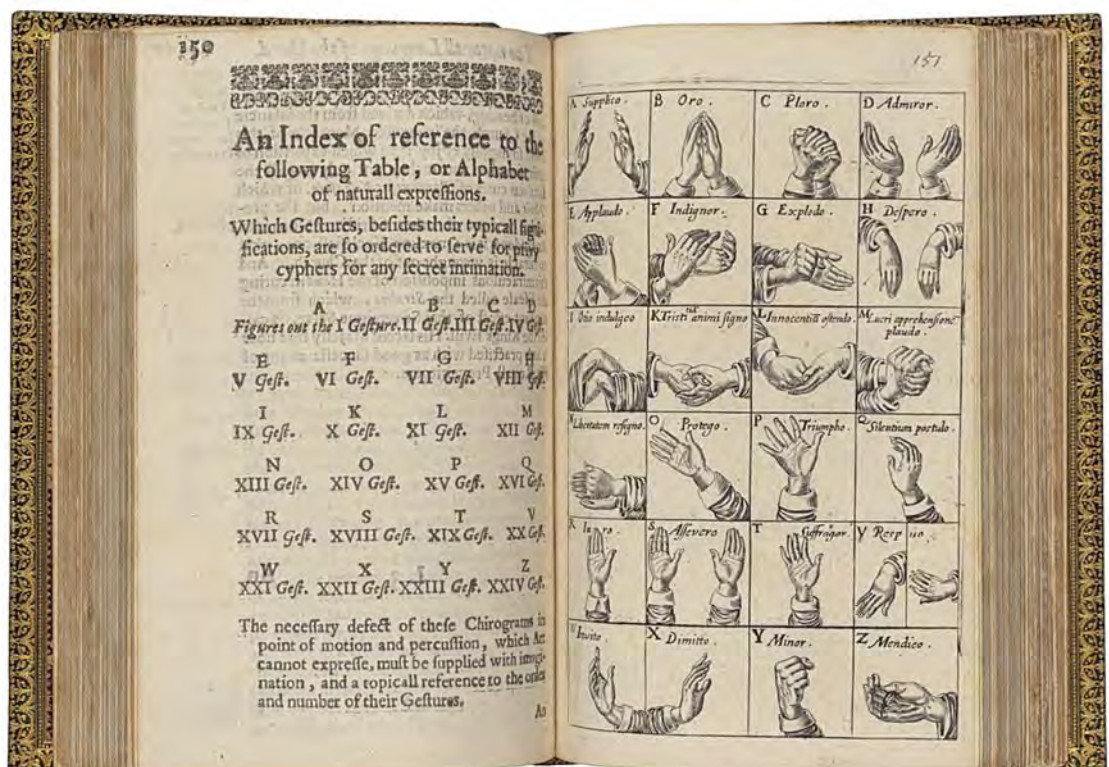 150
An Index of reference to the
following Table, or Alphabet
of naturall expreſſions.
Which Geſtures, beſides their typicall ſigni-
fications, are ſo ordered to ſerve for privy
cyphers for any ſecret intimation.
A B C D
Figures out the I Geſture. II Geſt. III Geſt. IV Geſt.
E F G H
V Geſt. VI Geſt. VII Geſt. VIII Geſt.
I K L M
IX Geſt. X Geſt. XI Geſt. XII Geſt.
N O P Q
XIII Geſt. XIV Geſt. XV Geſt. XVI Geſt.
R S T V
XVII Geſt. XVIII Geſt. XIX Geſt. XX Geſt.
W X Y Z
XXI Geſt. XXII Geſt. XXIII Geſt. XXIV Geſt.
The neceſſary defect of theſe Chirograms in
point of motion and percuſſion, which Art
cannot expreſſe, muſt be ſupplied with imagi-
nation, and a topicall reference to the order
and number of their Geſtures.
An
151
A Supplico. B Oro. C Ploro. D Admiror.
E Applaudo. F Indignor. G Explodo. H Deſpero.
I Otio indulgeo K Tristi animi ſigno L Innocentiā oſtendo. M Lucri apprehenſionē
plaudo.
N Libertatem reſigno. O Protego. P Triumpho. Q Silentium poſtulo.
S Aſſevero T Suffragor. V
Invito. X Dimitto. Y Minor. Z Mendico.